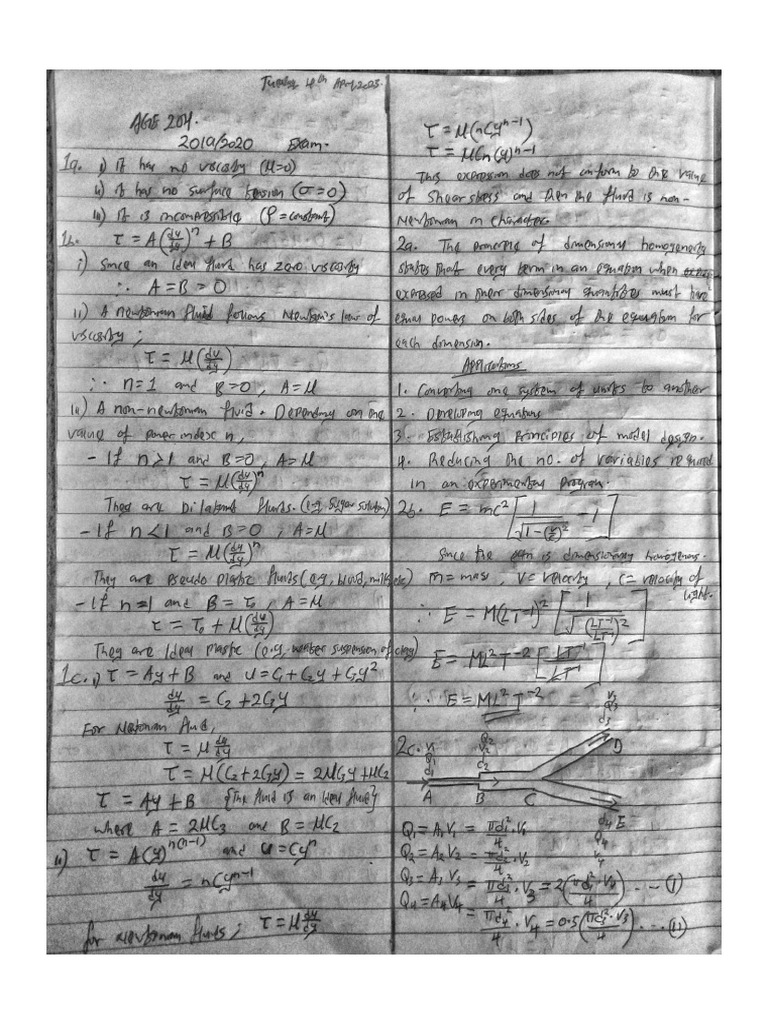 Tuesday 4th April, 2023.
AGE 204.
2019/2020 Exam.
1a. i) it has no viscosity (μ=0)
ii) it has no surface tension (σ=0)
iii) It is incompressible (ρ = constant)
1b. τ = A(du/dy)^n + B
i) Since an ideal fluid has zero viscosity
∴ A = B = 0
ii) A newtonian fluid follows Newton's law of
viscosity;
τ = μ(du/dy)
∴ n=1 and B=0, A=μ
iii) A non-newtonian fluid. Depending on the
value of power index n,
- If n>1 and B=0, A=μ
τ = μ(du/dy)^n
They are Dilatant fluids. (e.g. Sugar solution)
- If n<1 and B=0, A=μ
τ = μ(du/dy)^n
They are Pseudo Plastic fluids (e.g, blood, milk etc)
- If n=1 and B=τ₀, A=μ
τ = τ₀ + μ(du/dy)
They are Ideal Plastic (e.g, water suspension of clay)
1c. i) τ = Ay + B and u = C₁ + C₂y + C₃y²
du/dy = C₂ + 2C₃y
For Newtonian fluid,
τ = μ du/dy
τ = μ(C₂ + 2C₃y) = 2μC₃y + μC₂
τ = Ay + B {The fluid is an Ideal fluid}
where A = 2μC₃ and B = μC₂
ii) τ = A(y)^n(n-1) and u = Cy^n
du/dy = nCy^n-1
for Newtonian fluids; τ = μ du/dy
τ = μ(nCy^n-1)
τ = μCn(y)^n-1
This expression does not conform to the value
of Shear stress and then the fluid is non-
Newtonian in character.
2a. The principle of dimensional homogeneity
states that every term in an equation when
expressed in their dimensional quantities must have
equal powers on both sides of the equation for
each dimension.
Applications
1. Converting one system of units to another
2. Developing equations
3. Establishing Principles of model design.
4. Reducing the no. of variables required
in an experimental program.
2b. E = mc² [1/√(1-(v/c)²) - 1]
Since the eqn is dimensionally homogenous.
m = mass, v = velocity, c = velocity of
light.
∴ E = M(LT⁻¹)² [1/√-(LT⁻¹/LT⁻¹)²]
E = ML²T⁻² [LT⁻¹/LT⁻¹]
∴ E = ML²T⁻²
2c. V₁ Q₁ d₁ Q₂ V₂ C₂ V₃ Q₃ d₃
A B C D E
d₄ Q₄ V₄
Q₁ = A₁V₁ = πd₁²/4 · V₁
Q₂ = A₂V₂ = πd₂²/4 · V₂
Q₃ = A₃V₃ = πd₃²/4 · V₃ = 2(πd₄²/4 · V₄) ... (i)
Q₄ = A₄V₄ = πd₄²/4 · V₄ = 0.5(πd₃² · V₃/4) ... (ii)